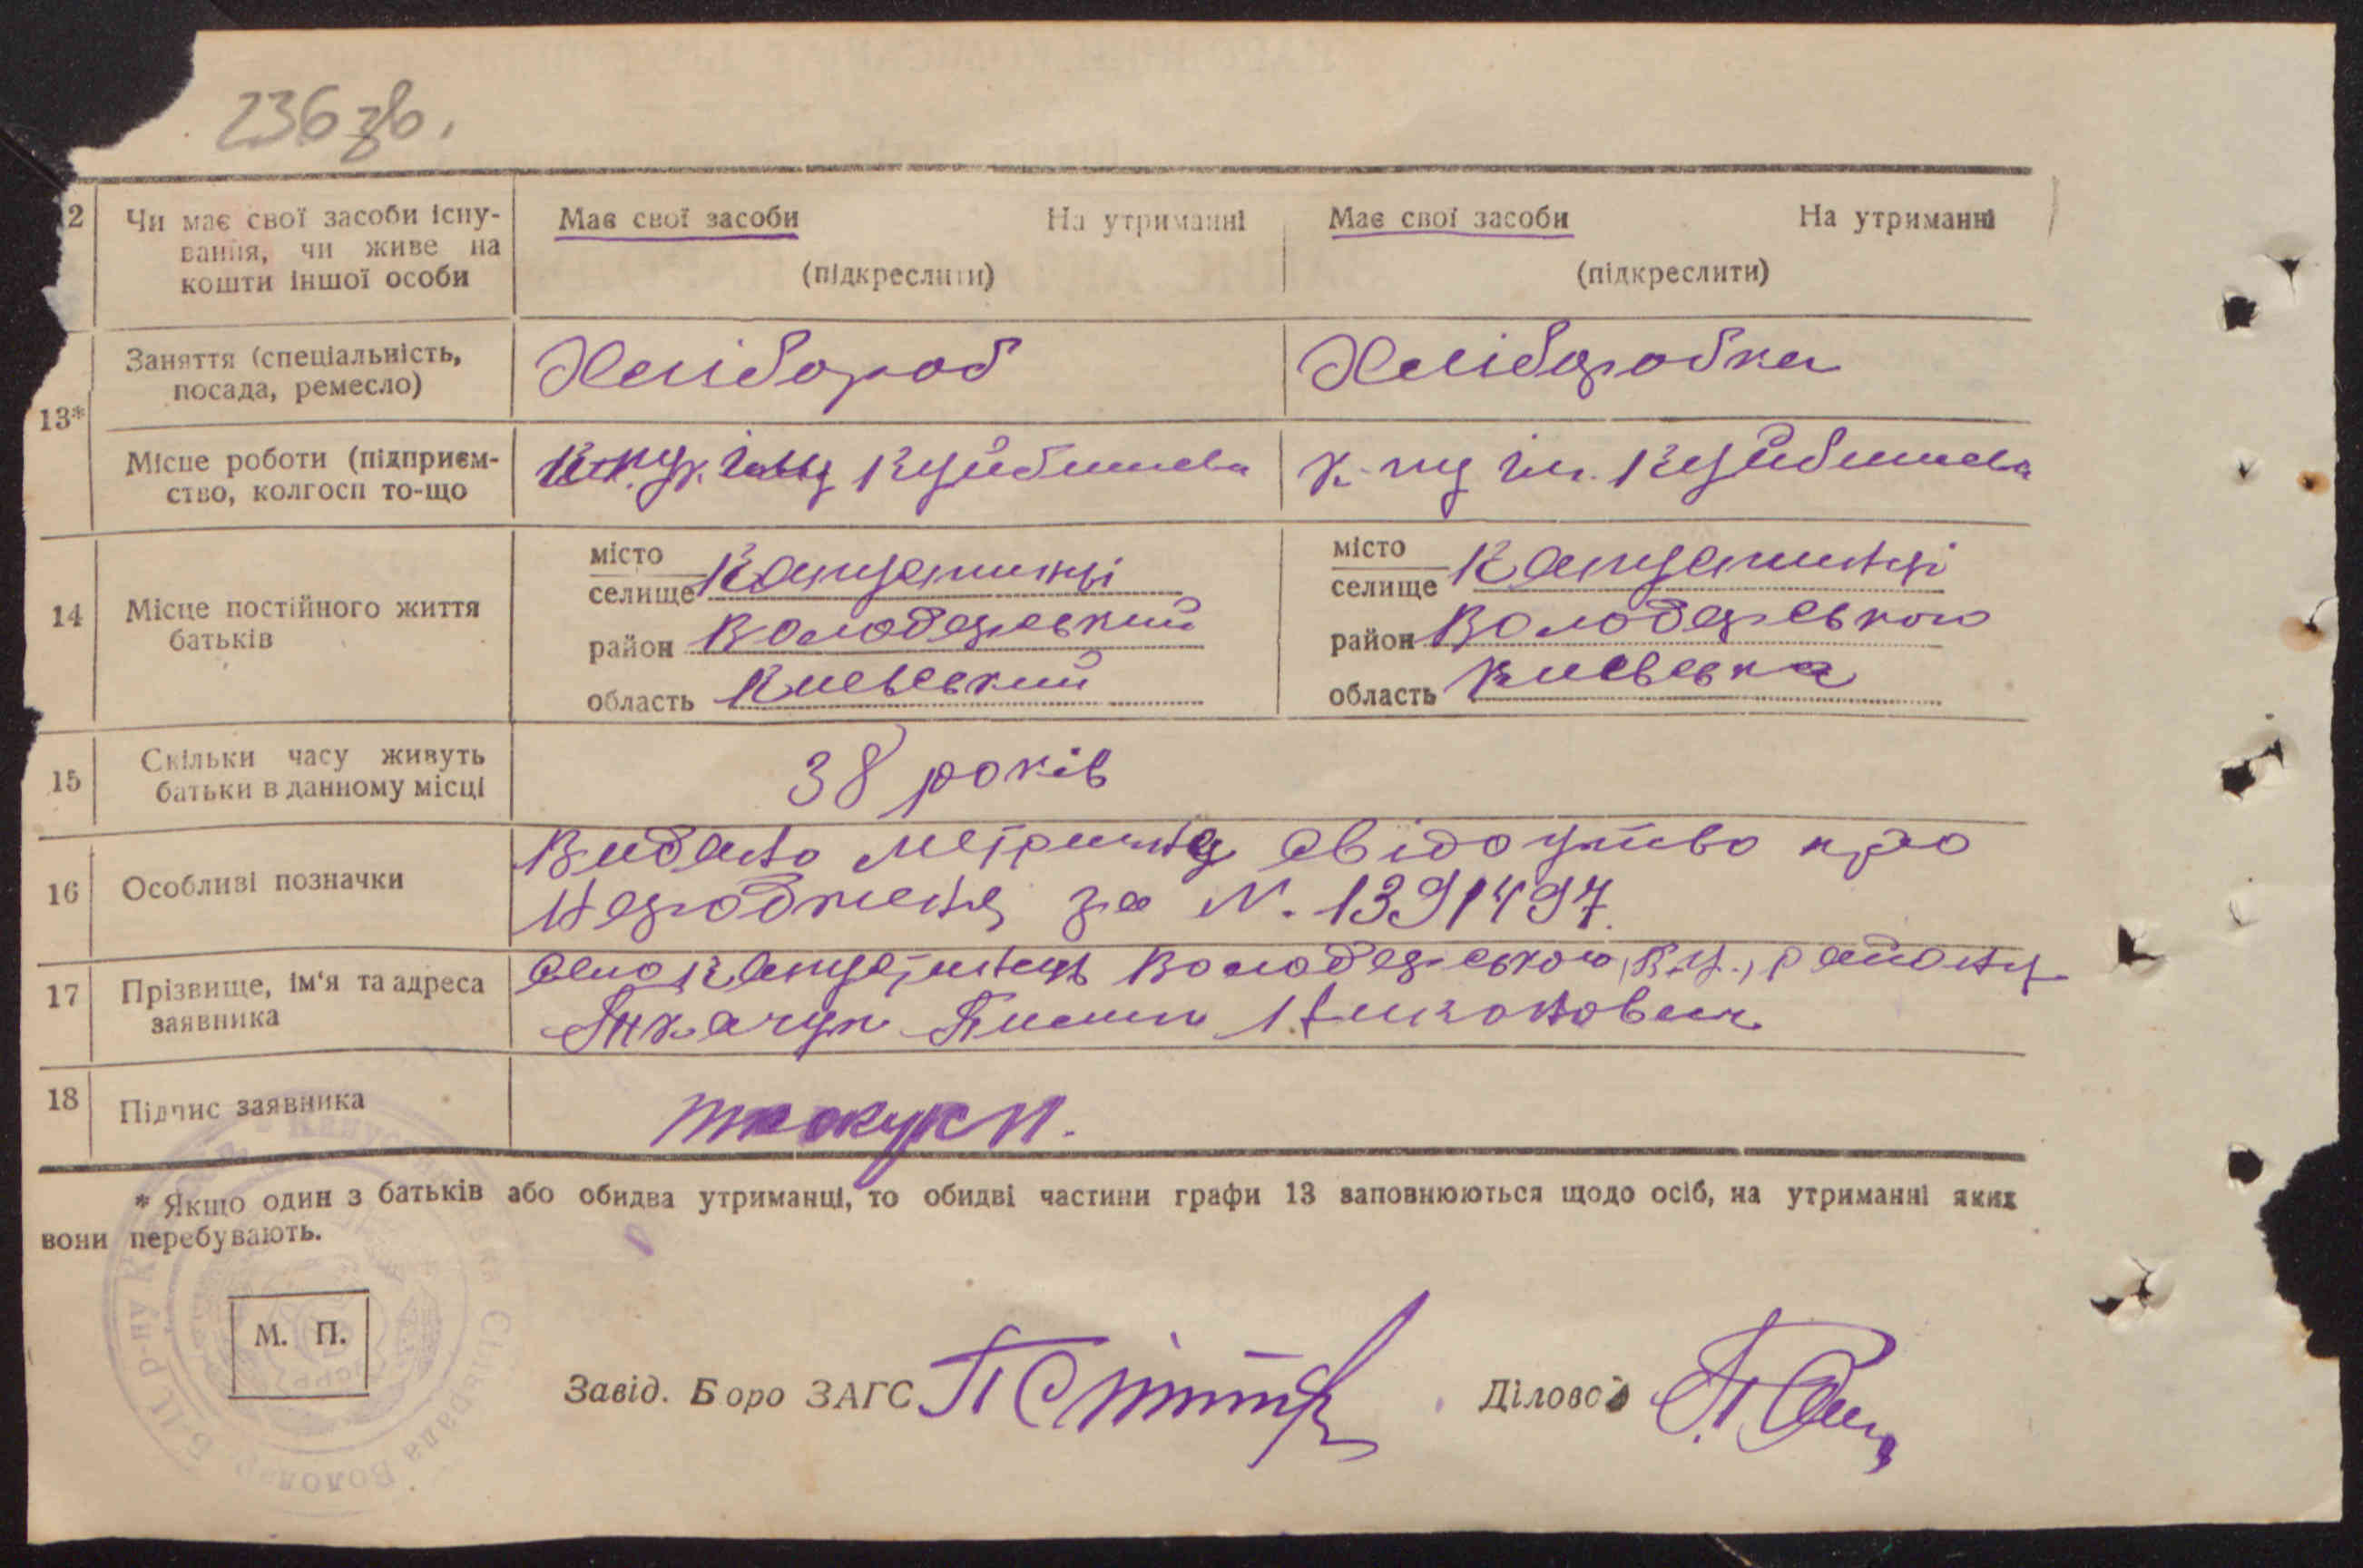 236 зв.
2 Чи має свої засоби існу-
вання, чи живе на
кошти іншої особи
Має свої засоби На утриманні
(підкреслити)
Має свої засоби На утриманні
(підкреслити)
13*
Заняття (спеціальність,
посада, ремесло)
Хлібороб
Хліборобка
Місце роботи (підприєм-
ство, колгосп то-що
Куйбишева
к-пу ім. Куйбишева
14 Місце постійного життя
батьків
місто
селище Капустинці
район Володарський
область Киевський
місто
селище Капустинці
район Володарського
область Киевська
15 Скільки часу живуть
батьки в данному місці
38 років
16 Особливі позначки
Видано метричну свідоцтво про
народженя за N. 1391497.
17 Прізвище, ім'я та адреса
заявника
село Володарського району
Ткачук Пилип
18 Підпис заявника
* Якщо один з батьків або обидва утриманці, то обидві частини графи 13 заповнюються щодо осіб, на утриманні яких
вони перебувають.
М. П.
Завід. Бюро ЗАГС
Діловод